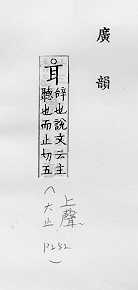 廣韻
耳
辭也說文云主
聽也而止切五
上聲
(六止
P252)